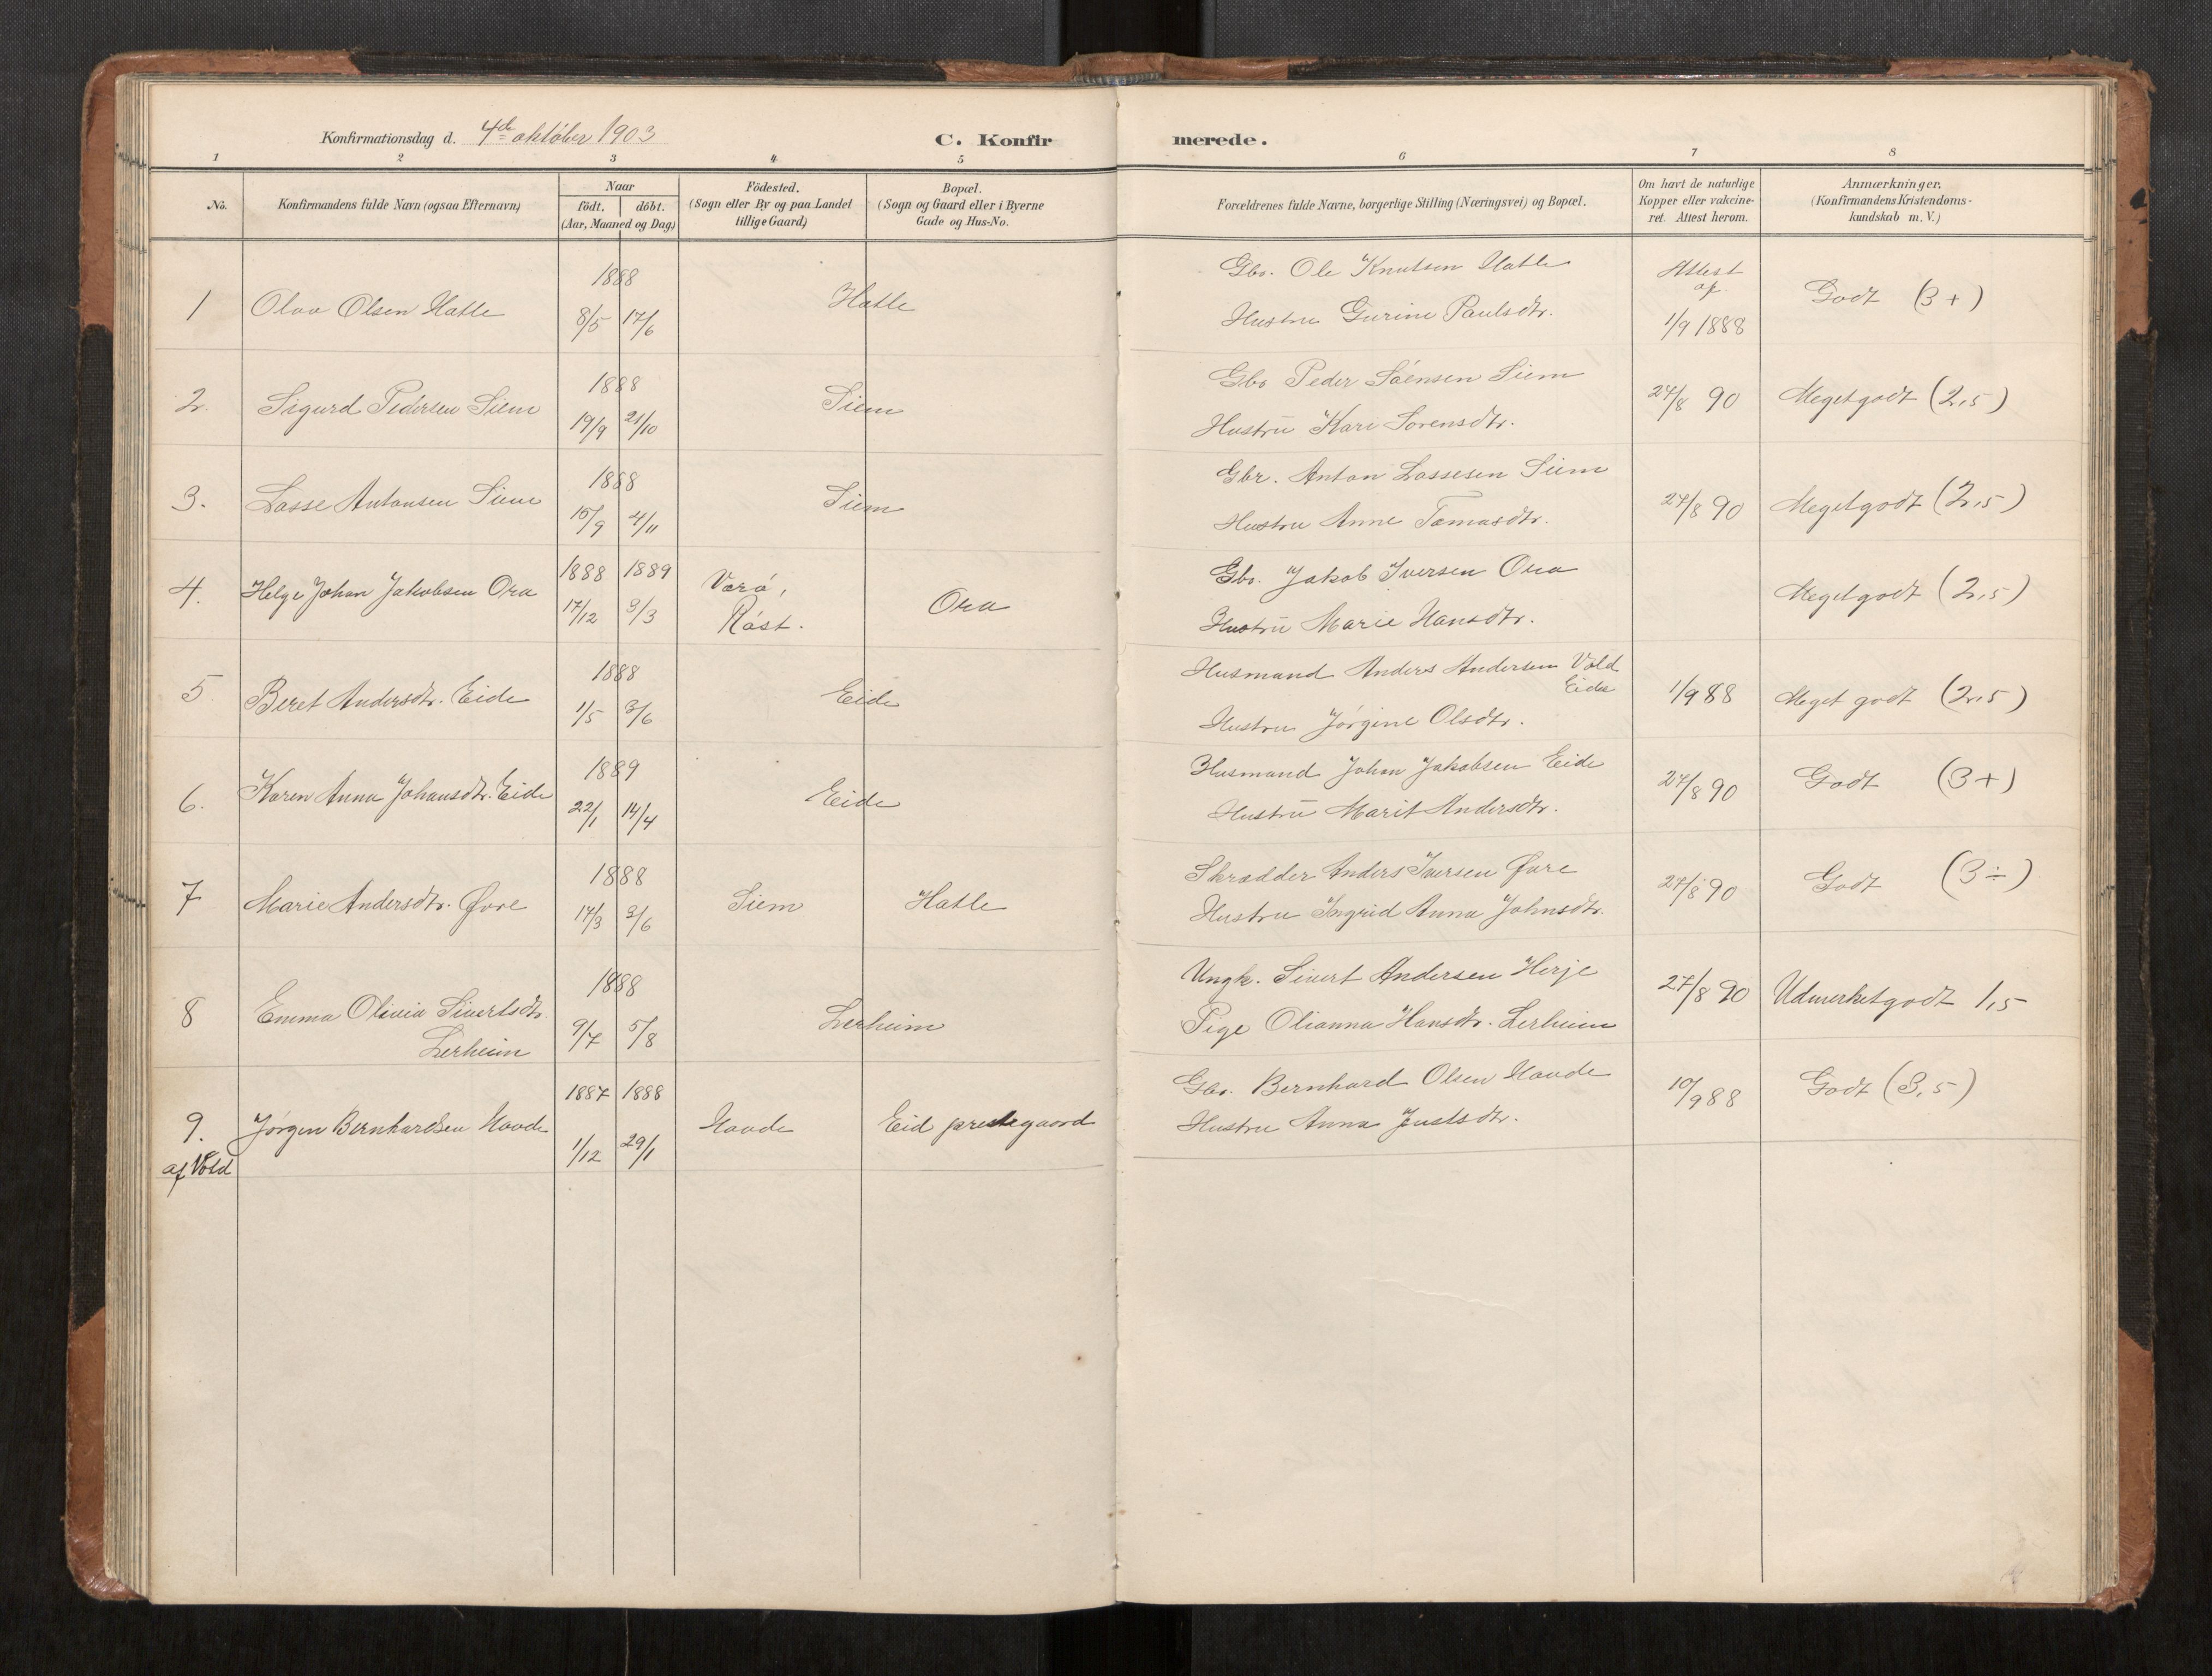 Konfirmationsdag d. 4de oktober 1903
C. Konfirmerede.
1 2 3 4 5 6 7 8
No.
Konfirmandens fulde Navn (ogsaa Efternavn)
Naar
födt. döbt.
(Aar, Maaned og Dag)
Födested.
(Sogn eller By og paa Landet
tillige Gaard)
Bopæl.
(Sogn og Gaard eller i Byerne
Gade og Hus-No.
Forældrenes fulde Navne, borgerlige Stilling (Næringsvei) og Bopæl.
Om havt de naturlige
Kopper eller vakcine-
ret. Attest herom.
Anmærkninger.
(Konfirmandens Kristendoms-
kundskab m. V.)
1 Olav Olsen Hatle
1888
8/5 17/6
Hatle
Gbr. Ole Knutsen Hatle
Hustru Gurine Paulsdtr.
Attest
af
1/9 1888
Godt (3+)
2. Sigurd Pedersen Siem
1888
19/9 21/10
Siem
Gbr Peder Sóensen Siem
Hustru Kari Sorensdtr.
27/8 90
Megetgodt (2,5)
3. Lasse Antonsen Siem
1888
15/9 4/11
Siem
Gbr. Anton Lassesen Siem
Hustru Anne Tomasdtr.
27/8 90
Megetgodt (2,5)
4. Helge Johan Jakobsen Ora
1888 1889
17/12 3/3
Værö,
Röst.
Ora
Gbr. Jakob Iversen Ora
Hustru Marie Hansdtr.
Megetgodt (2,5)
5 Beret Andersdtr. Eide
1888
1/5 3/6
Eide
Husmand Anders Andersen Vold
Eide
Hustru Jørgine Olsdtr.
1/9 88
Meget godt (2,5)
6. Karen Anna Johansdtr. Eide
1889
22/1 14/4
Eide
Husmand Johan Jakobsen Eide
Hustru Marit Andersdtr.
27/8 90
Godt (3+)
7 Marie Andersdtr. Øvre
1888
17/3 3/6
Siem
Hatle
Skrædder Anders Iversen Øvre
Hustru Ingrid Anna Johnsdtr.
27/8 90
Godt (3÷)
8 Emma Olivia Sivertsdtr.
Lerheim
1888
9/7 5/8
Lerheim
Ungk. Sivert Andersen Herje
Pige Olianna Hansdtr. Lerheim
27/8 90
Udmerketgodt 1,5
9. Jørgen Bernhardsen Haade
af Vold
1887 1888
1/12 29/1
Haade
Eid prestegaard
Gbr. Bernhard Olsen Haade
Hustru Anna Justsdtr.
10/9 88
Godt (3,5)